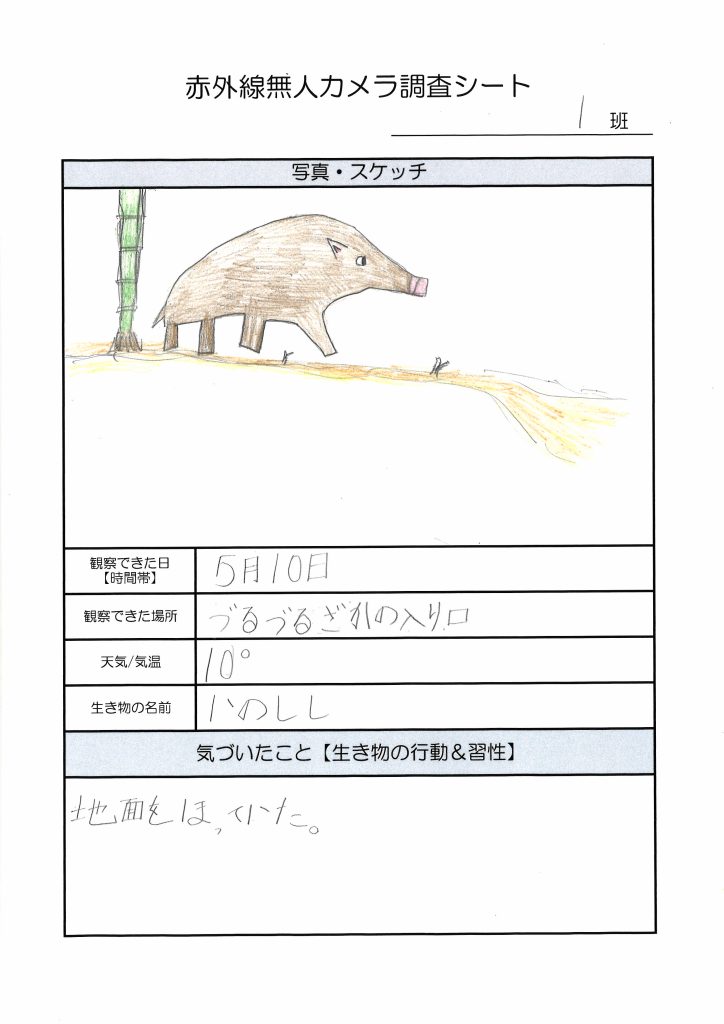 赤外線無人カメラ調査シート
1 班
写真・スケッチ
観察できた日
【時間帯】
5月10日
観察できた場所
づるづるざれの入り口
天気/気温
10°
生き物の名前
いのしし
気づいたこと【生き物の行動&習性】
地面をほっていた。